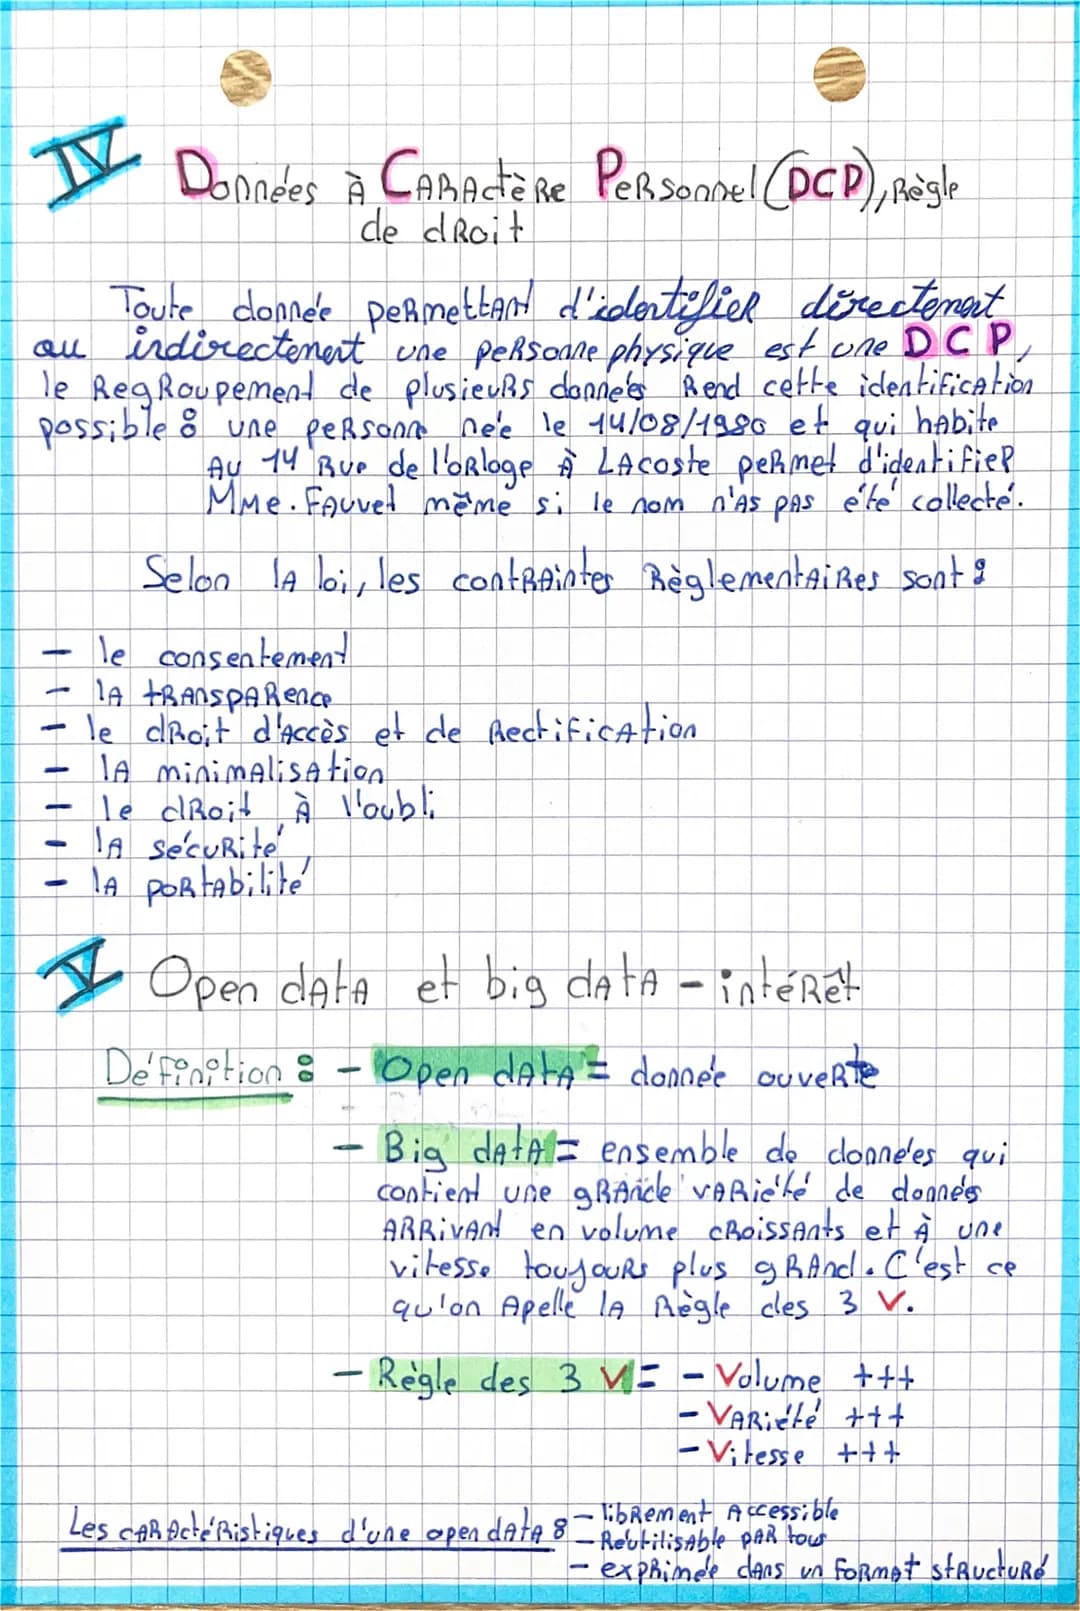 IV Données à Caractère Personnel (DCP), Règle
de droit
Toute donnée permettant d'identifier directement
ou indirectement une personne physique est une DCP,
le Regroupement de plusieurs données Rend cette identification
possible : une personne née le 14/08/1980 et qui habite
Au 14 Rue de l'orloge à Lacoste permet d'identifier
Mme. Fauvet même si le nom n'as pas été collecté.
Selon la loi, les contraintes Règlementaires sont :
- le consentement
- la transparence
- le droit d'accès et de Rectification
- la minimalisation
- le droit à l'oubli
- la sécurité
- la portabilité
V Open data et big data - intérêt
Définition : - Open data = donnée ouverte
- Big data = ensemble de données qui
contient une grande variété de données
arrivant en volume croissants et à une
vitesse toujours plus grand. C'est ce
qu'on Apelle la Règle des 3 V.
- Règle des 3 V = - Volume +++
- Variété +++
- Vitesse +++
Les caractéristiques d'une open data : - librement Accessible
- Réutilisable par tous
- exprimée dans un format structuré